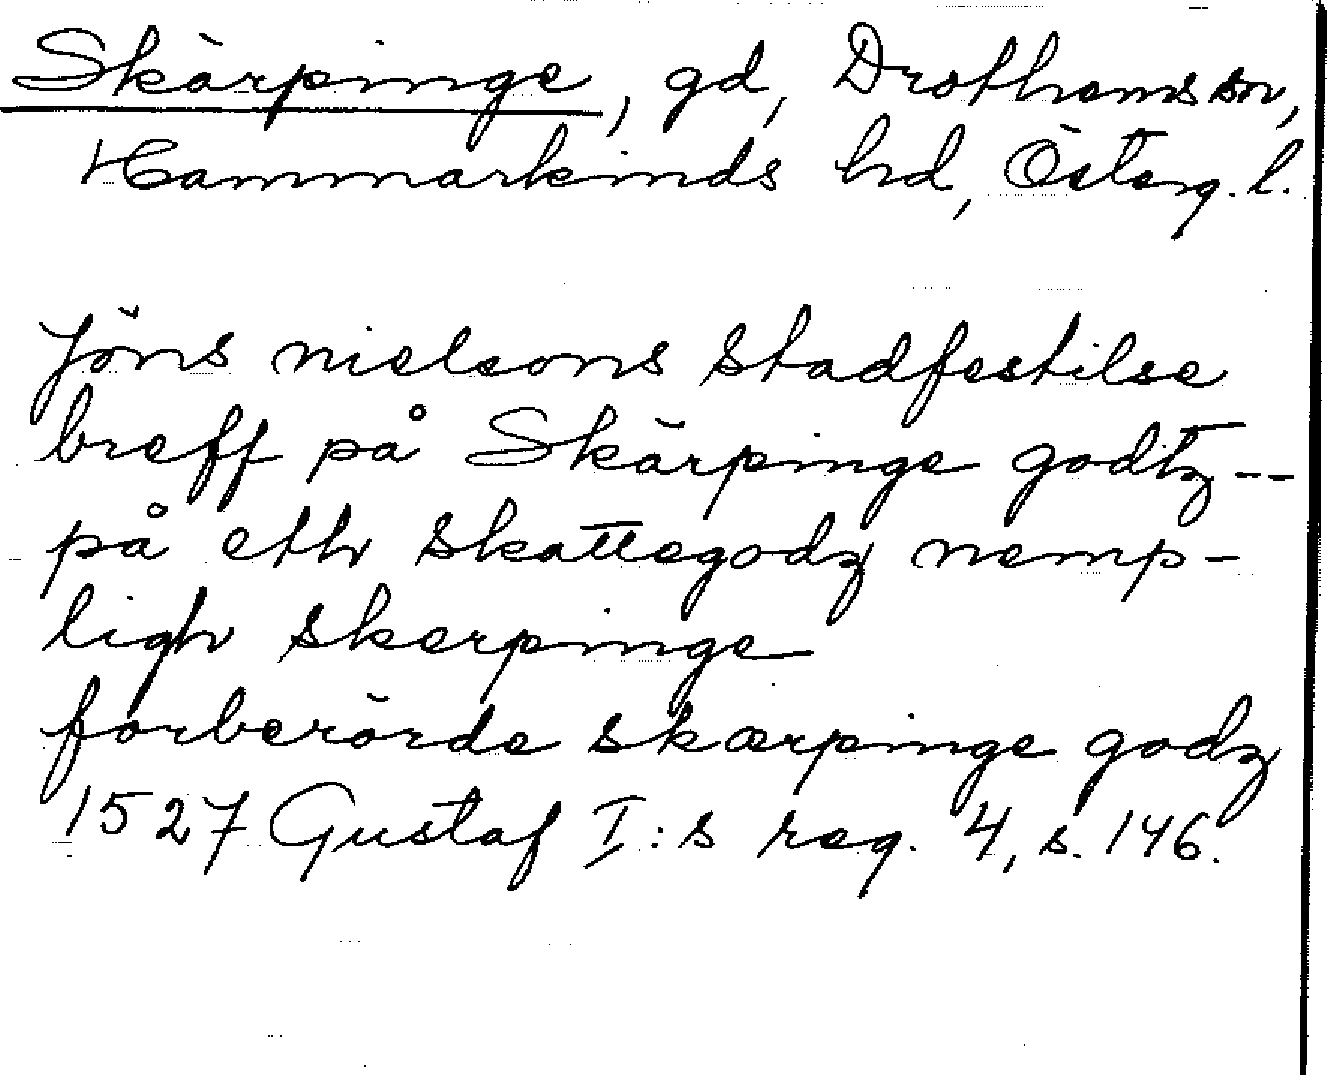 Skärpinge, gd, Drothems sn,
Hammarkinds hd, Österg. l.
Jöns nielsons stadfestilse
breff på Skärpinge godtz --
på eth skattegodz nemp-
ligh skerpinge
forberörde skærpinge godz
1527 Gustaf I:s reg. 4, s. 146.